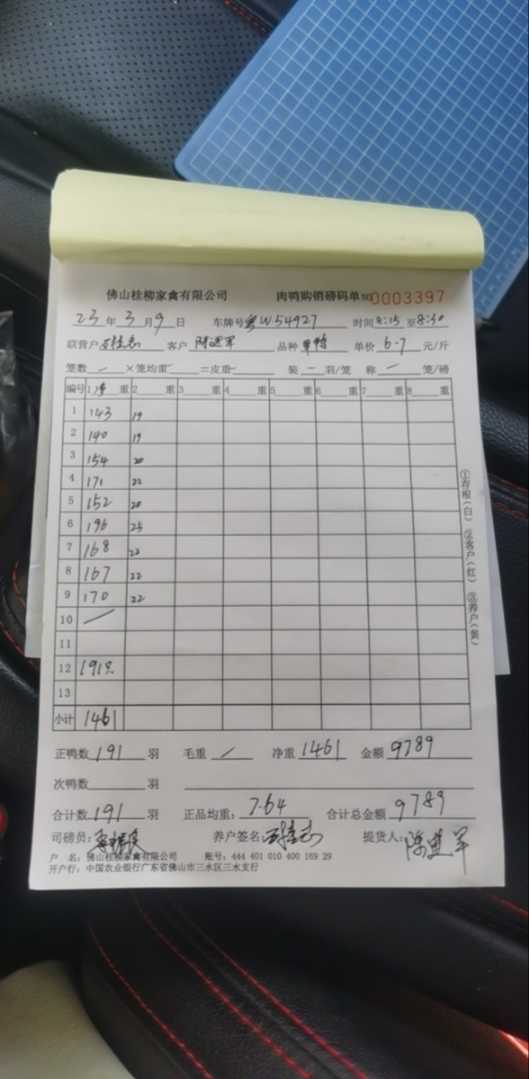 佛山桂柳家禽有限公司 肉鸭购销磅码单 NO 0003397
23 年 3 月 9 日 车牌号 粤W54927 时间 8:15 至 8:30
联营户 客户 陈进军 品种 单价 6.7 元/斤
笼数 / ×笼均重 =皮重 装 一 羽/笼 称 一 笼/磅
编号 1 净 重 2 重 3 重 4 重 5 重 6 重 7 重 8 重
1 143 19
2 140 19
3 154 20
4 171 22
5 152 20
6 196 25
7 168 22
8 167 22
9 170 22
10 /
11
12 191只
13
小计 1461
①存根(白) ②客户(红) ③养户(黄)
正鸭数 191 羽 毛重 / 净重 1461 金额 9789
次鸭数 羽
合计数 191 羽 正品均重: 7.64 合计总金额 9789
司磅员: 养户签名: 提货人: 陈进军
户 名: 佛山桂柳家禽有限公司 账号: 444 401 010 400 169 29
开户行: 中国农业银行广东省佛山市三水区三水支行